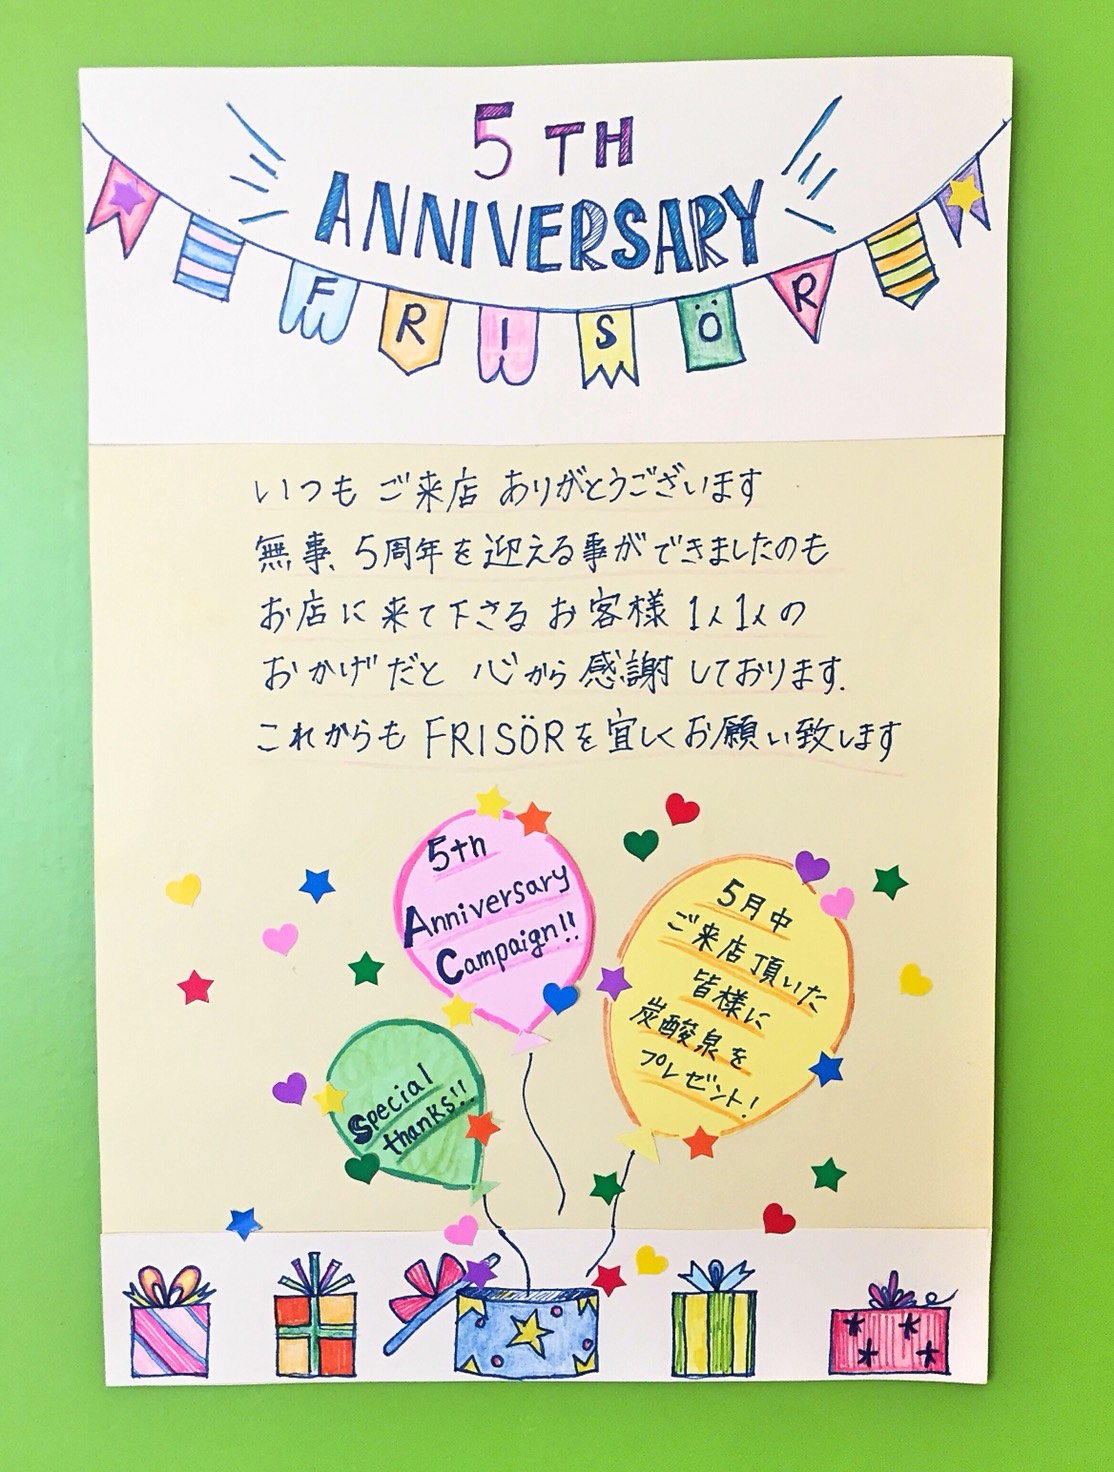 5TH
ANNIVERSARY
FRISÖR
いつも ご来店 ありがとうございます
無事、5周年を迎える事ができましたのも
お店に来て下さる お客様 1人1人の
おかげだと 心から感謝しております.
これからも FRISÖRを宜しくお願い致します
5th
Anniversary
Campaign!!
5月中
ご来店頂いた
皆様に
炭酸泉を
プレゼント!
Special
thanks!!